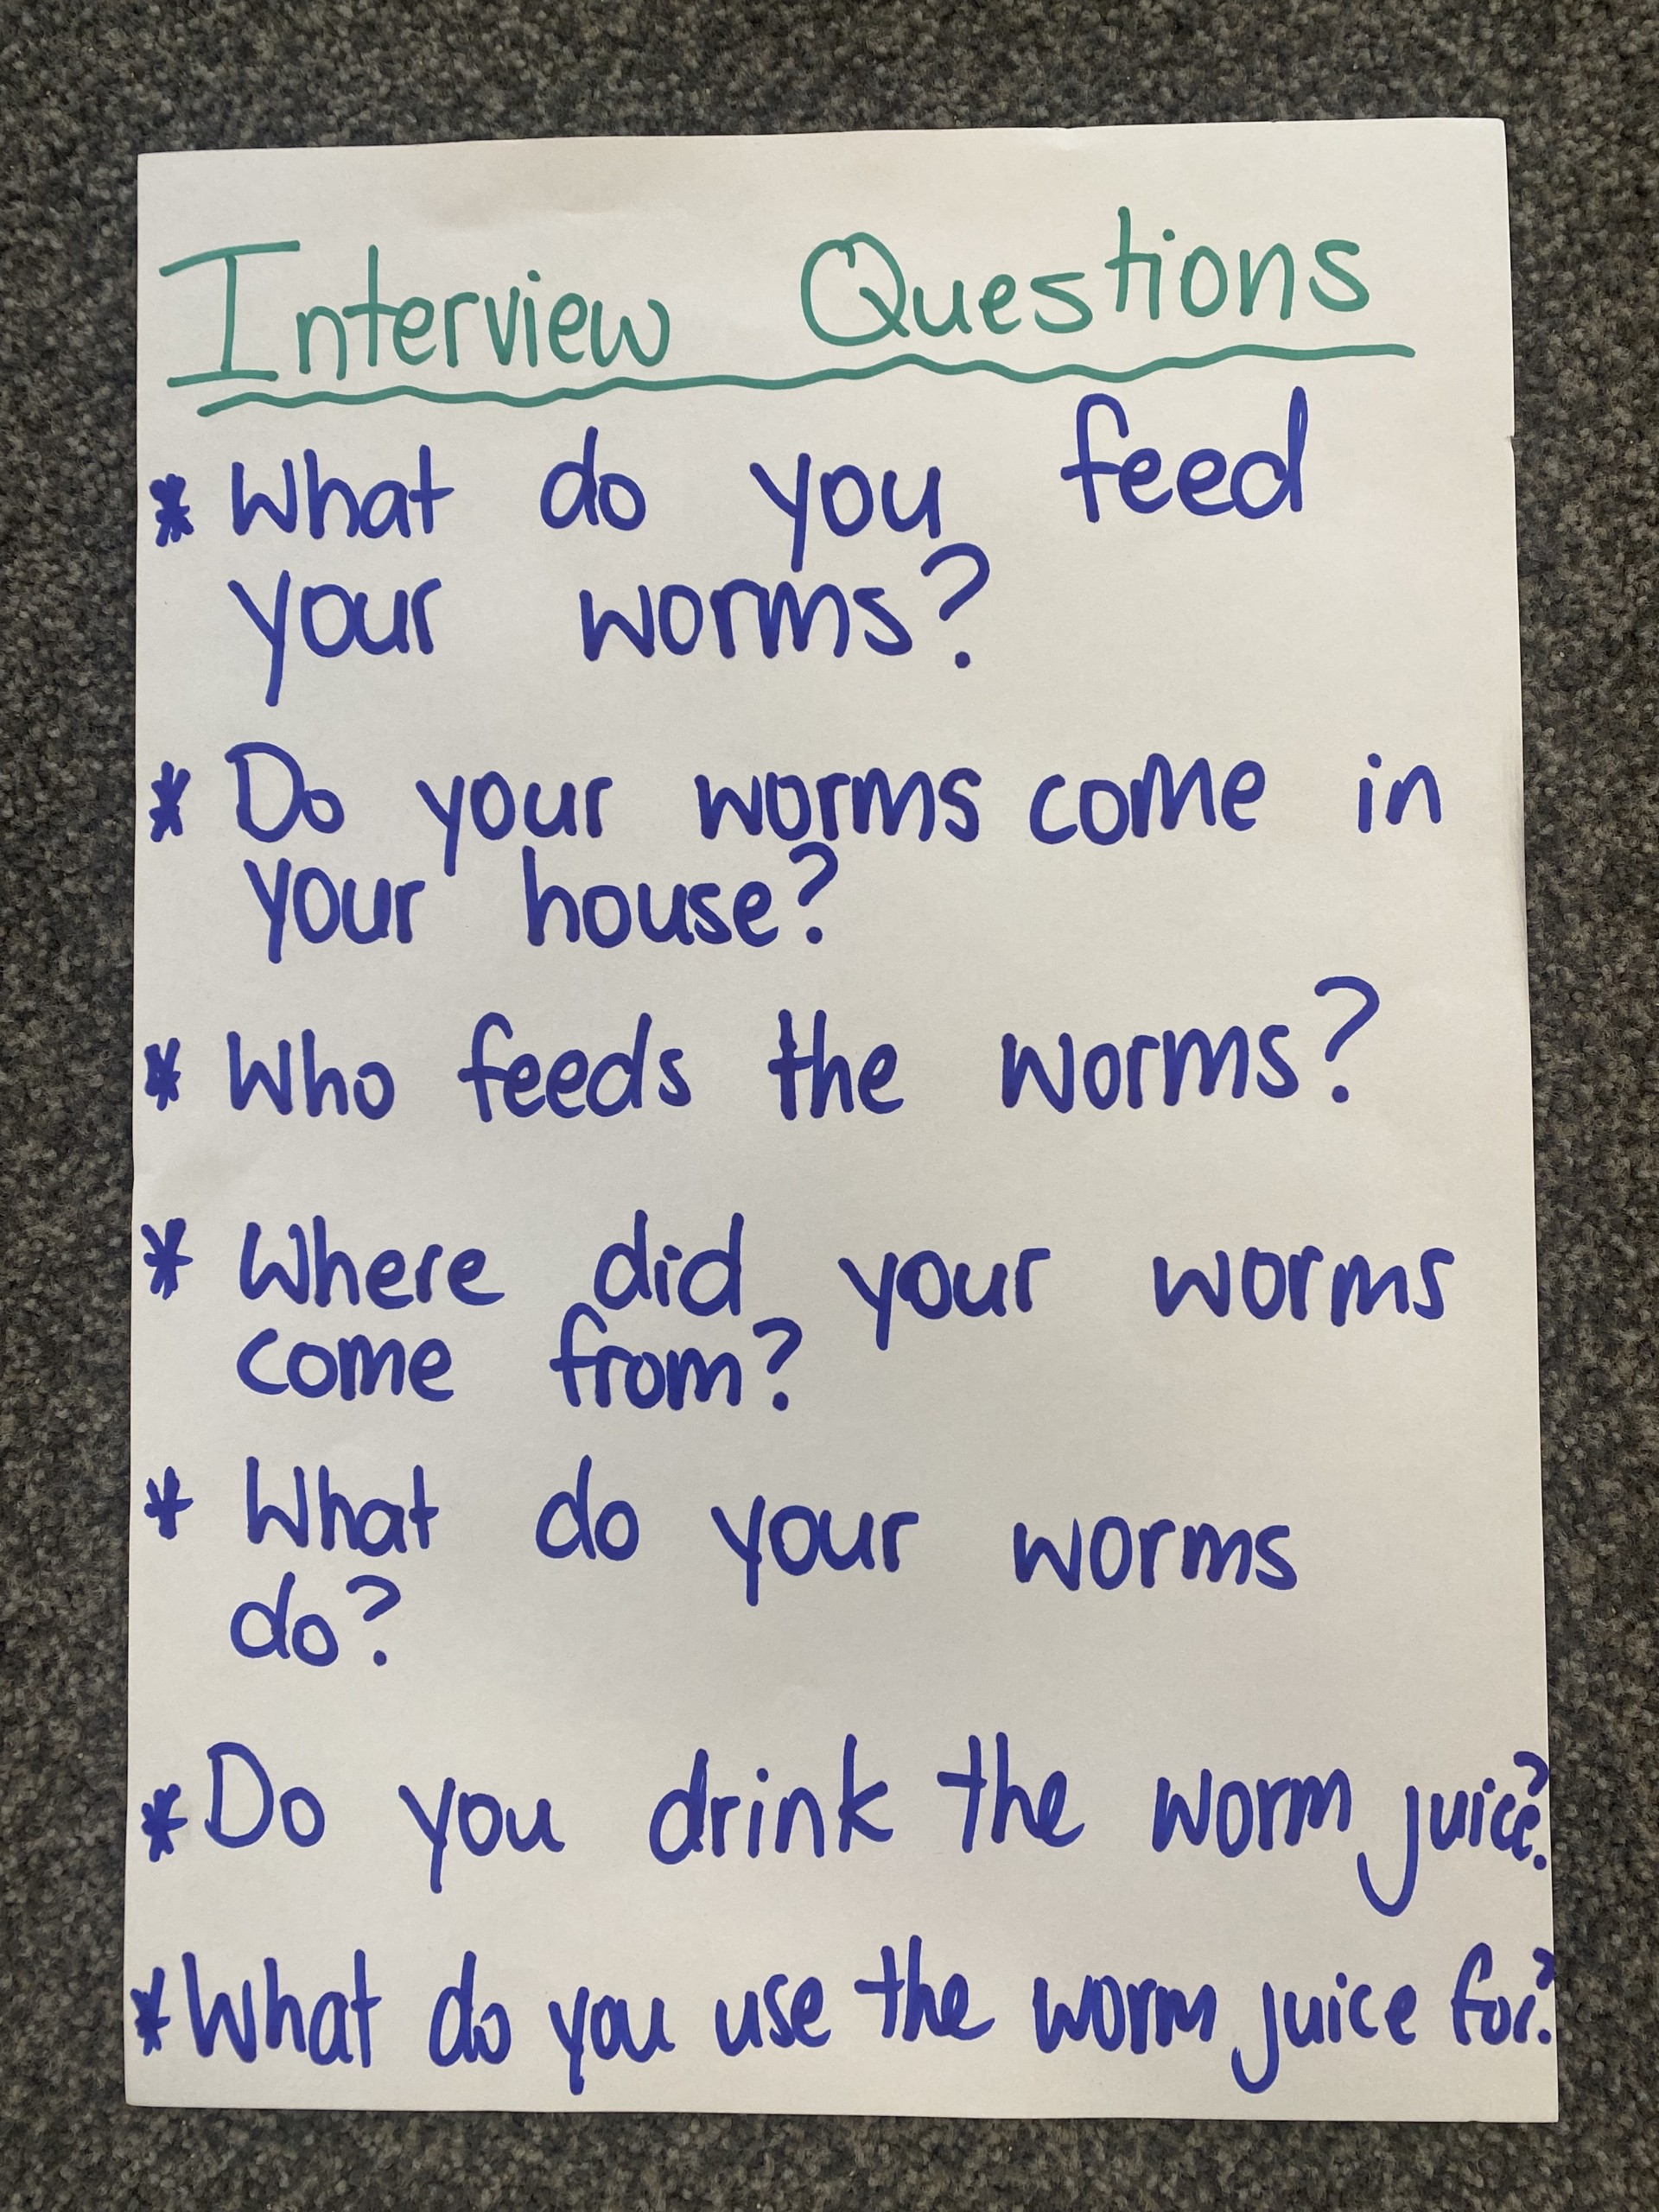 Interview Questions
* What do you feed
your worms?
* Do your worms come in
your house?
* Who feeds the worms?
* Where did your worms
come from?
* What do your worms
do?
* Do you drink the worm juice?
* What do you use the worm juice for?